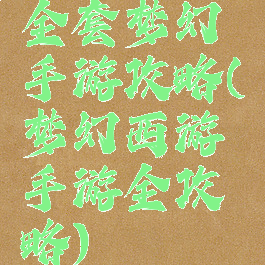 全套梦幻
手游攻略(
梦幻西游
手游全攻
略)